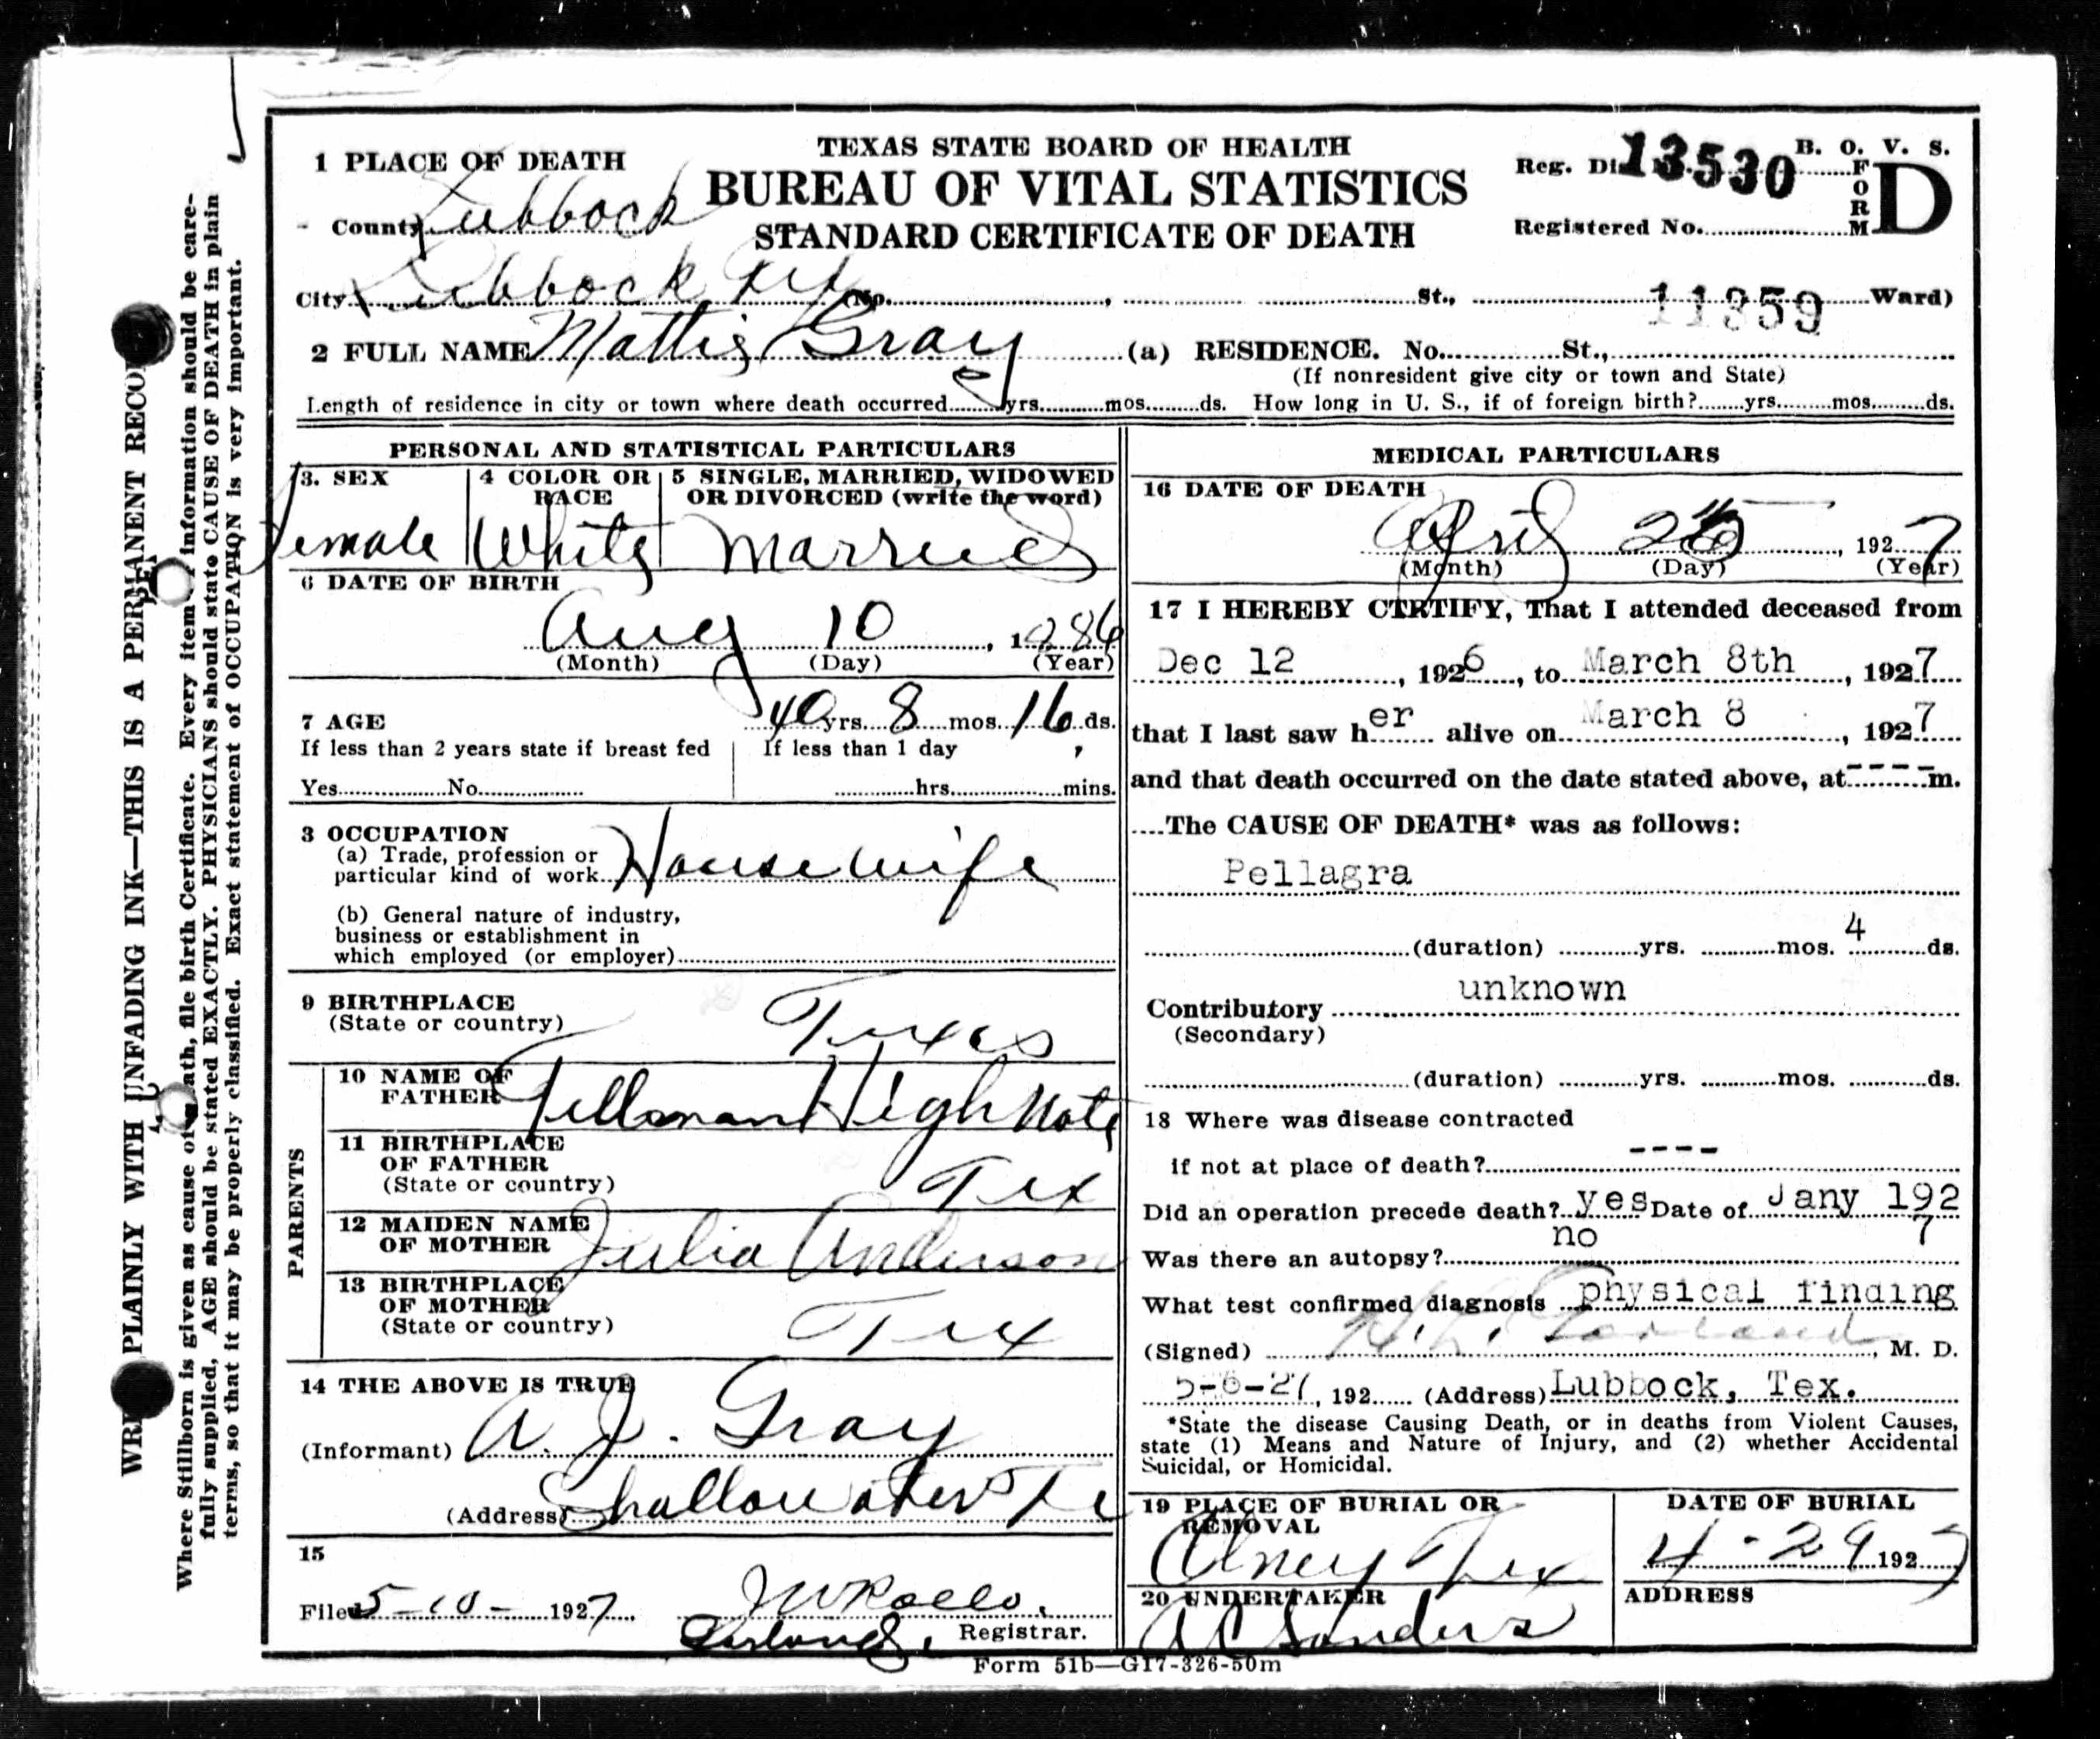 TEXAS STATE BOARD OF HEALTH
BUREAU OF VITAL STATISTICS
STANDARD CERTIFICATE OF DEATH
Reg. Dis 13530 B. O. V. S.
FORM D
Registered No.
1 PLACE OF DEATH
County Lubbock
City Lubbock Tex (No. , St., 11859 Ward)
2 FULL NAME Mattie Gray (a) RESIDENCE. No. St.,
(If nonresident give city or town and State)
Length of residence in city or town where death occurred yrs. mos. ds. How long in U. S., if of foreign birth? yrs. mos. ds.
PERSONAL AND STATISTICAL PARTICULARS
3. SEX
Female
4 COLOR OR RACE
White
5 SINGLE, MARRIED, WIDOWED
OR DIVORCED (write the word)
Married
6 DATE OF BIRTH
Aug 10 , 1886
(Month) (Day) (Year)
7 AGE 40 yrs. 8 mos. 16 ds.
If less than 2 years state if breast fed
Yes No
If less than 1 day ,
hrs. mins.
3 OCCUPATION
(a) Trade, profession or
particular kind of work Housewife
(b) General nature of industry,
business or establishment in
which employed (or employer)
9 BIRTHPLACE
(State or country) Texas
PARENTS
10 NAME OF
FATHER Tillman High Note
11 BIRTHPLACE
OF FATHER
(State or country) Tex
12 MAIDEN NAME
OF MOTHER Julia Anderson
13 BIRTHPLACE
OF MOTHER
(State or country) Tex
14 THE ABOVE IS TRUE
(Informant) A. J. Gray
(Address) Shallowater Te
15
Filed 5-10- 1927.
Registrar.
MEDICAL PARTICULARS
16 DATE OF DEATH
April , 1927
(Month) (Day) (Year)
17 I HEREBY CERTIFY, That I attended deceased from
Dec 12 , 1926, to March 8th , 1927
that I last saw her alive on March 8 , 1927
and that death occurred on the date stated above, at ---- m.
The CAUSE OF DEATH* was as follows:
Pellagra
(duration) yrs. mos. 4 ds.
Contributory unknown
(Secondary)
(duration) yrs. mos. ds.
18 Where was disease contracted
if not at place of death? ----
Did an operation precede death? yes Date of Jany 192
7
Was there an autopsy? no
What test confirmed diagnosis physical finding
(Signed) , M. D.
, 192 (Address) Lubbock, Tex.
*State the disease Causing Death, or in deaths from Violent Causes,
state (1) Means and Nature of Injury, and (2) whether Accidental
Suicidal, or Homicidal.
19 PLACE OF BURIAL OR
REMOVAL
Olney Tex
DATE OF BURIAL
4-29 1927
20 UNDERTAKER
A C Sanders
ADDRESS
Form 51b—G17-326-50m
PLAINLY WITH UNFADING INK—THIS IS A PERMANENT RECO
Where Stillborn is given as cause of death, file birth Certificate. Every item of information should be care-
fully supplied. AGE should be stated EXACTLY. PHYSICIANS should state CAUSE OF DEATH in plain
terms, so that it may be properly classified. Exact statement of OCCUPATION is very important.